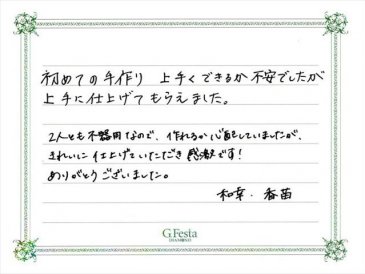 初めての手作り 上手くできるか不安でしたが
上手に仕上げてもらえました。
2人とも不器用なので、作れるか心配していましたが、
きれいに仕上げていただき感激です!
ありがとうございました。
和幸・香苗
GFesta
DIAMOND